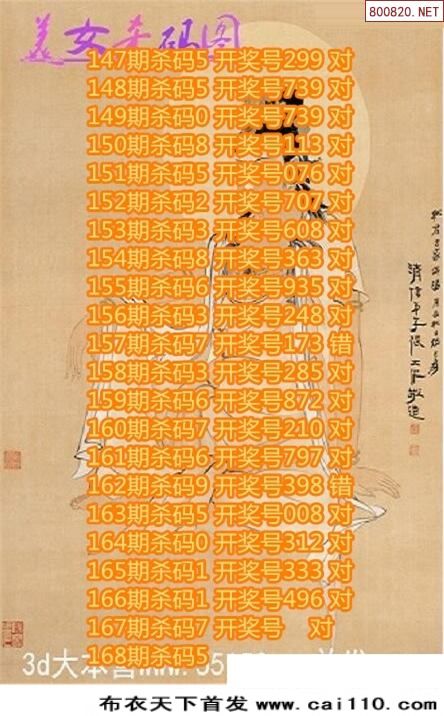 800820.NET
美女杀码图
147期杀码5 开奖号299 对
148期杀码5 开奖号739 对
149期杀码0 开奖号739 对
150期杀码8 开奖号113 对
151期杀码5 开奖号076 对
152期杀码2 开奖号707 对
153期杀码3 开奖号608 对
154期杀码8 开奖号363 对
155期杀码6 开奖号935 对
156期杀码3 开奖号248 对
157期杀码7 开奖号173 错
158期杀码3 开奖号285 对
159期杀码6 开奖号872 对
160期杀码7 开奖号210 对
161期杀码6 开奖号797 对
162期杀码9 开奖号398 错
163期杀码5 开奖号008 对
164期杀码0 开奖号312 对
165期杀码1 开奖号333 对
166期杀码1 开奖号496 对
167期杀码7 开奖号 对
168期杀码5
3d大本营
布衣天下首发 www.cai110.com